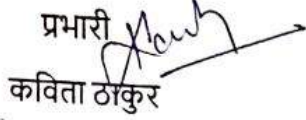 प्रभारी
कविता ठाकुर